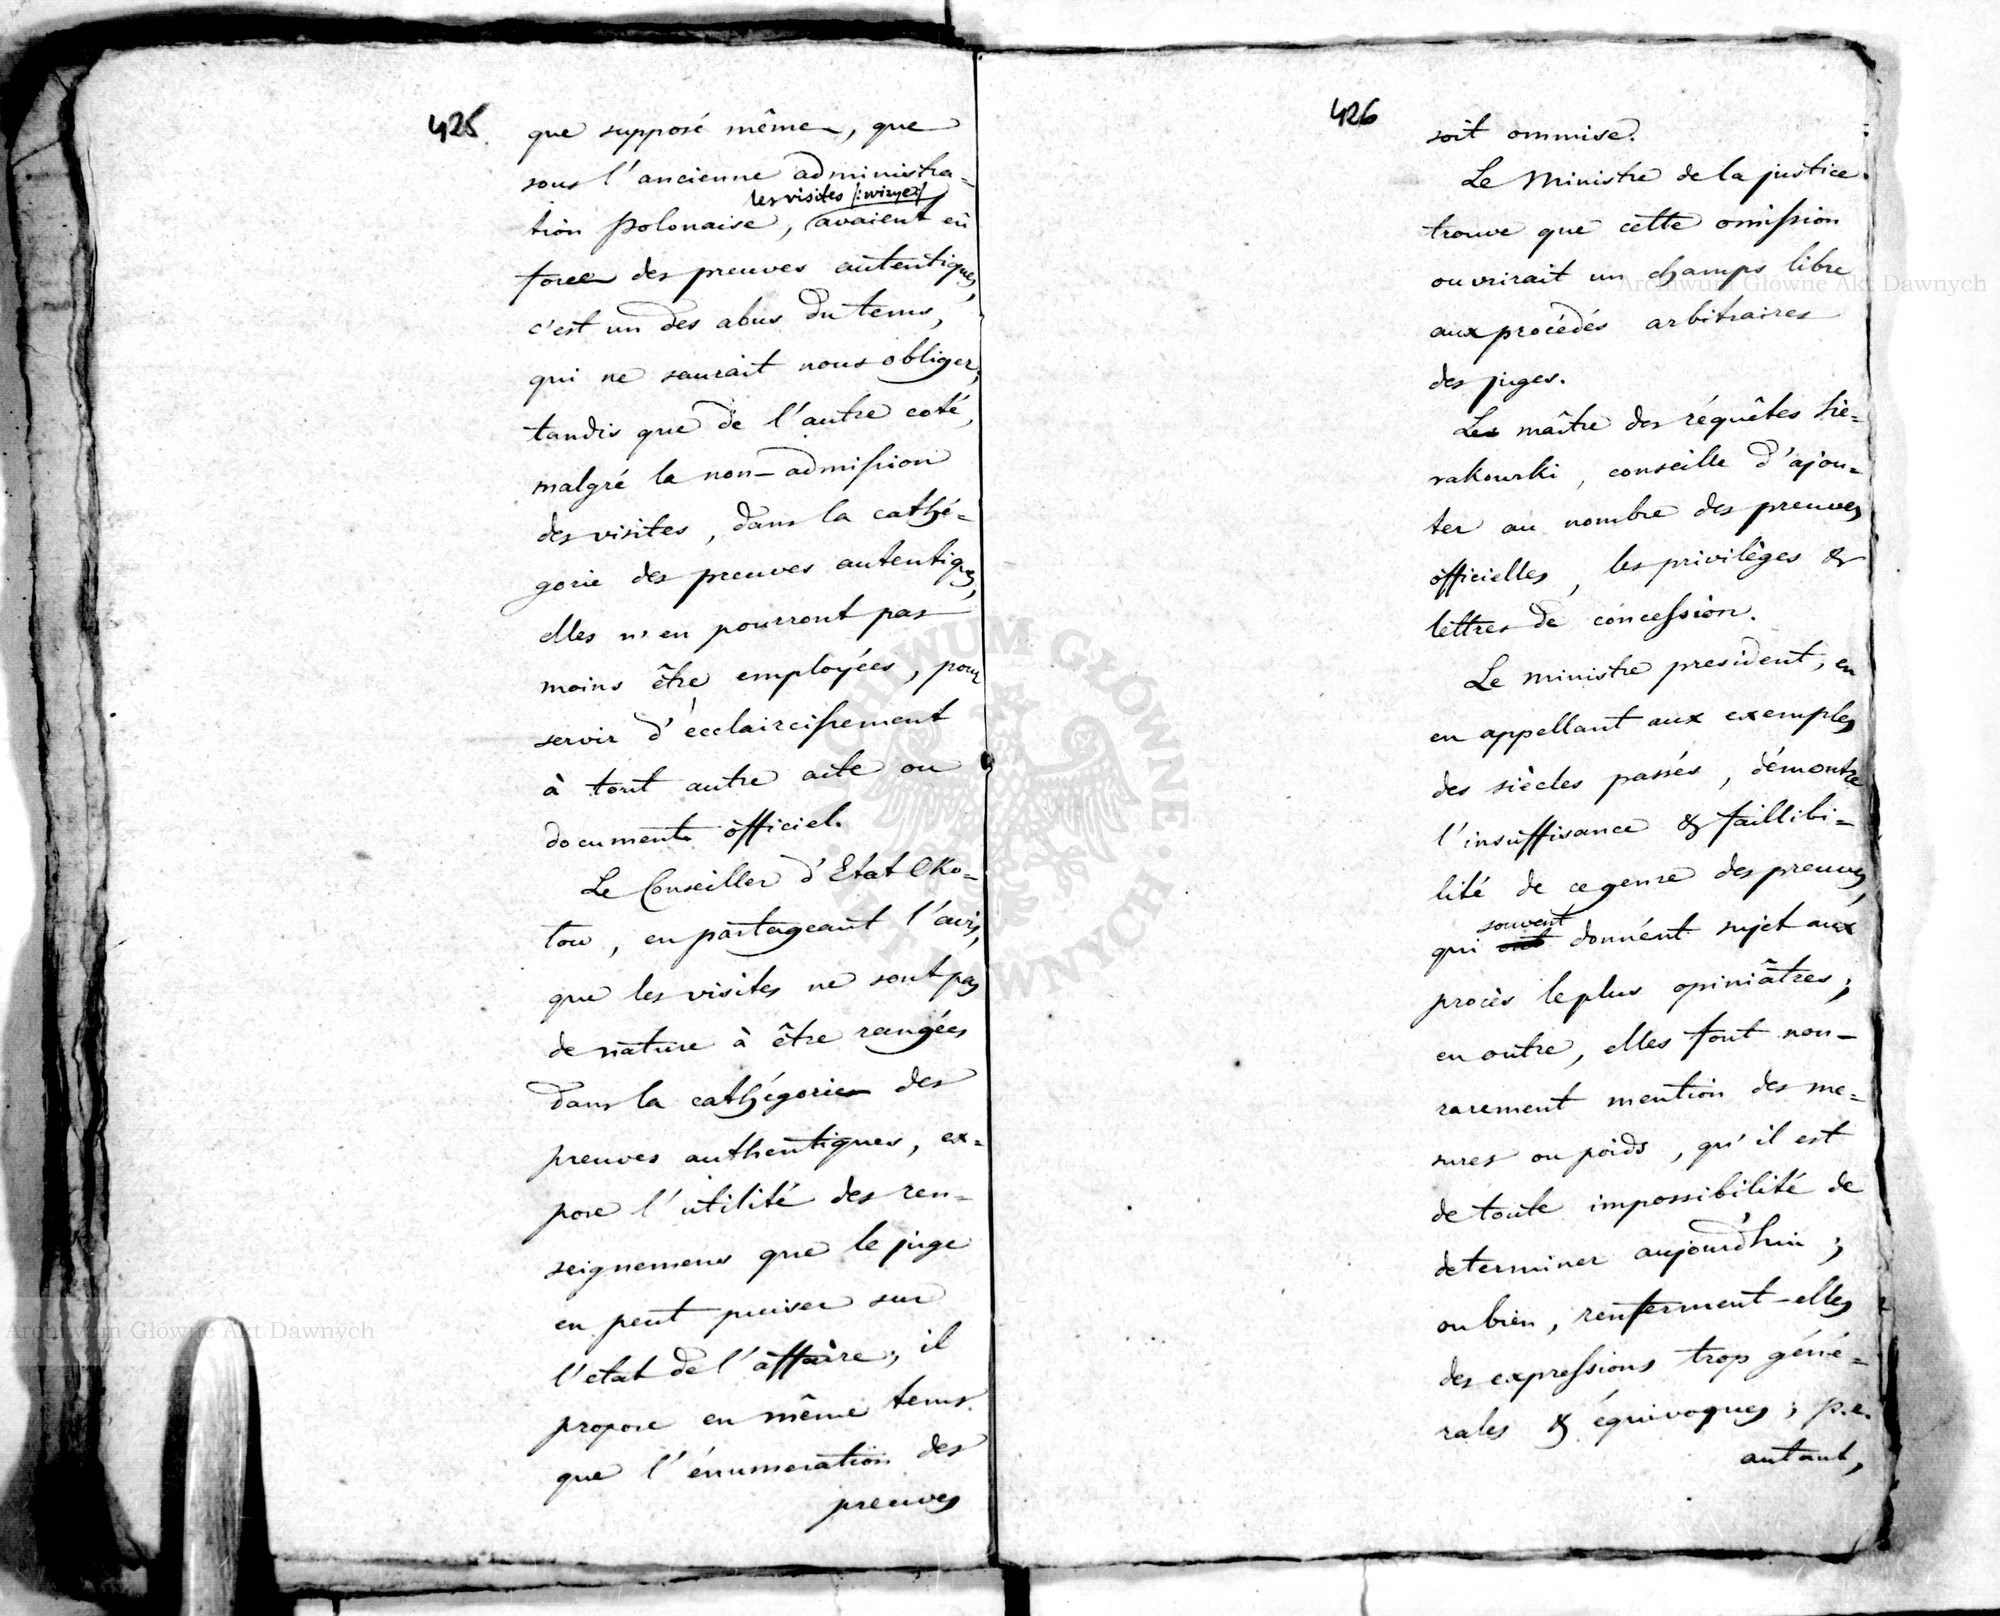 425.
que supposé même, que
sous l'ancienne administra=
les visites /:wizye:/
tion polonaise, avaient eû
force des preuves autentiques,
c'est un des abus du tems,
qui ne saurait nous obliger;
tandis que de l'autre coté,
malgré la non-admission
des visites, dans la cathé=
gorie des preuves autentiques,
elles n'en pourront pas
moins être employées, pour
servir d'ecclaircissement
à tout autre acte ou
documente officiel.
Le Conseiller d'Etat Oko=
tow, en partageant l'avis,
que les visites ne sont pas
de nature à être rangées
dans la cathégorie des
preuves authentiques, ex=
pose l'utilité des ren=
seignemens que le juge
en peut puiser sur
l'etat de l'affaire; il
propose en même tems.
que l'énumeration des
preuves
426
soit ommise.
Le Ministre de la justice
trouve que cette omission
ouvrirait un champs libre
aux procédés arbitraires
des juges.
Le maître des réquêtes Sie=
rakowski, conseille d'ajou=
ter au nombre des preuves
officielles, les privilèges &
lettres de concession.
Le ministre president, en
en appellant aux exemples
des siècles passés, démontre
l'insuffisance & faillibi=
lité de ce genre des preuves,
souvent
qui donnént sujet aux
procès le plus opiniâtres;
en outre, elles font non-
rarement mention des me=
sures ou poids, qu'il est
de toute impossibilité de
determiner aujourd'hui;
ou bien, renferment-elles
des expressions trop géné=
rales & équivoques; p.e.
autant,
Archiwum Główne Akt Dawnych
Archiwum Główne Akt Dawnych
ARCHIWUM GŁÓWNE AKT DAWNYCH